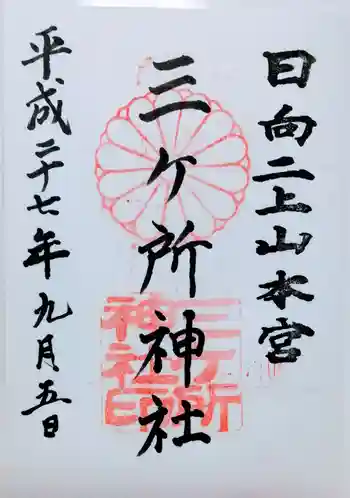 日向二上山本宮
三ヶ所神社
三ヶ所
神社印
平成二十七年九月五日